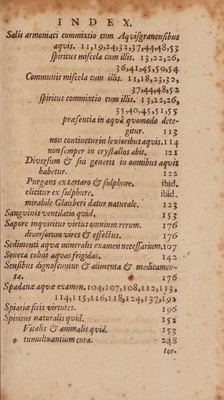 INDEX.
Salis armoniaci commixtio cum Aquisgranensibus
aquis. 11,19,24,32,37,44,48,53
spiritus miscela cum illis. 13,22,26,
36,41,45,50,54
Communis miscela cum illis. 11,18,23,32,
37,44,48,52
spiritus commixtio cum illis. 13,22,26,
35,40,45,51,55
præsentia in aquâ quomodo dete-
gitur. 113
non continetur in levioribus aquis. 114
non semper in crystallos abit. 121
Diversum & sui generis in omnibus aquis
habetur. 122
Purgans ex tartaro & sulphure. ibid.
elicitur ex sulphure. ibid.
mirabile Glauberi datur naturale. 123
Sanguinis ventilatio quid. 153
Sapore inquiritur virtus omnium rerum. 176
diversorum vires & effectus. 176
Sedimenti aquæ mineralis examen necessarium. 107
Seneca cobus aquas frigidas. 142
Sensibus dignoscuntur & alimenta & medicamen-
ta. 176
Spadanæ aquæ examen. 104,107,108,112,113,
114,115,116,118,124,137,192
Spiariæ ficis virtutes. 196
Spiritus naturalis quid. 152
Vitalis & animalis quid. 153
tumultuantium cura. 248
tor-